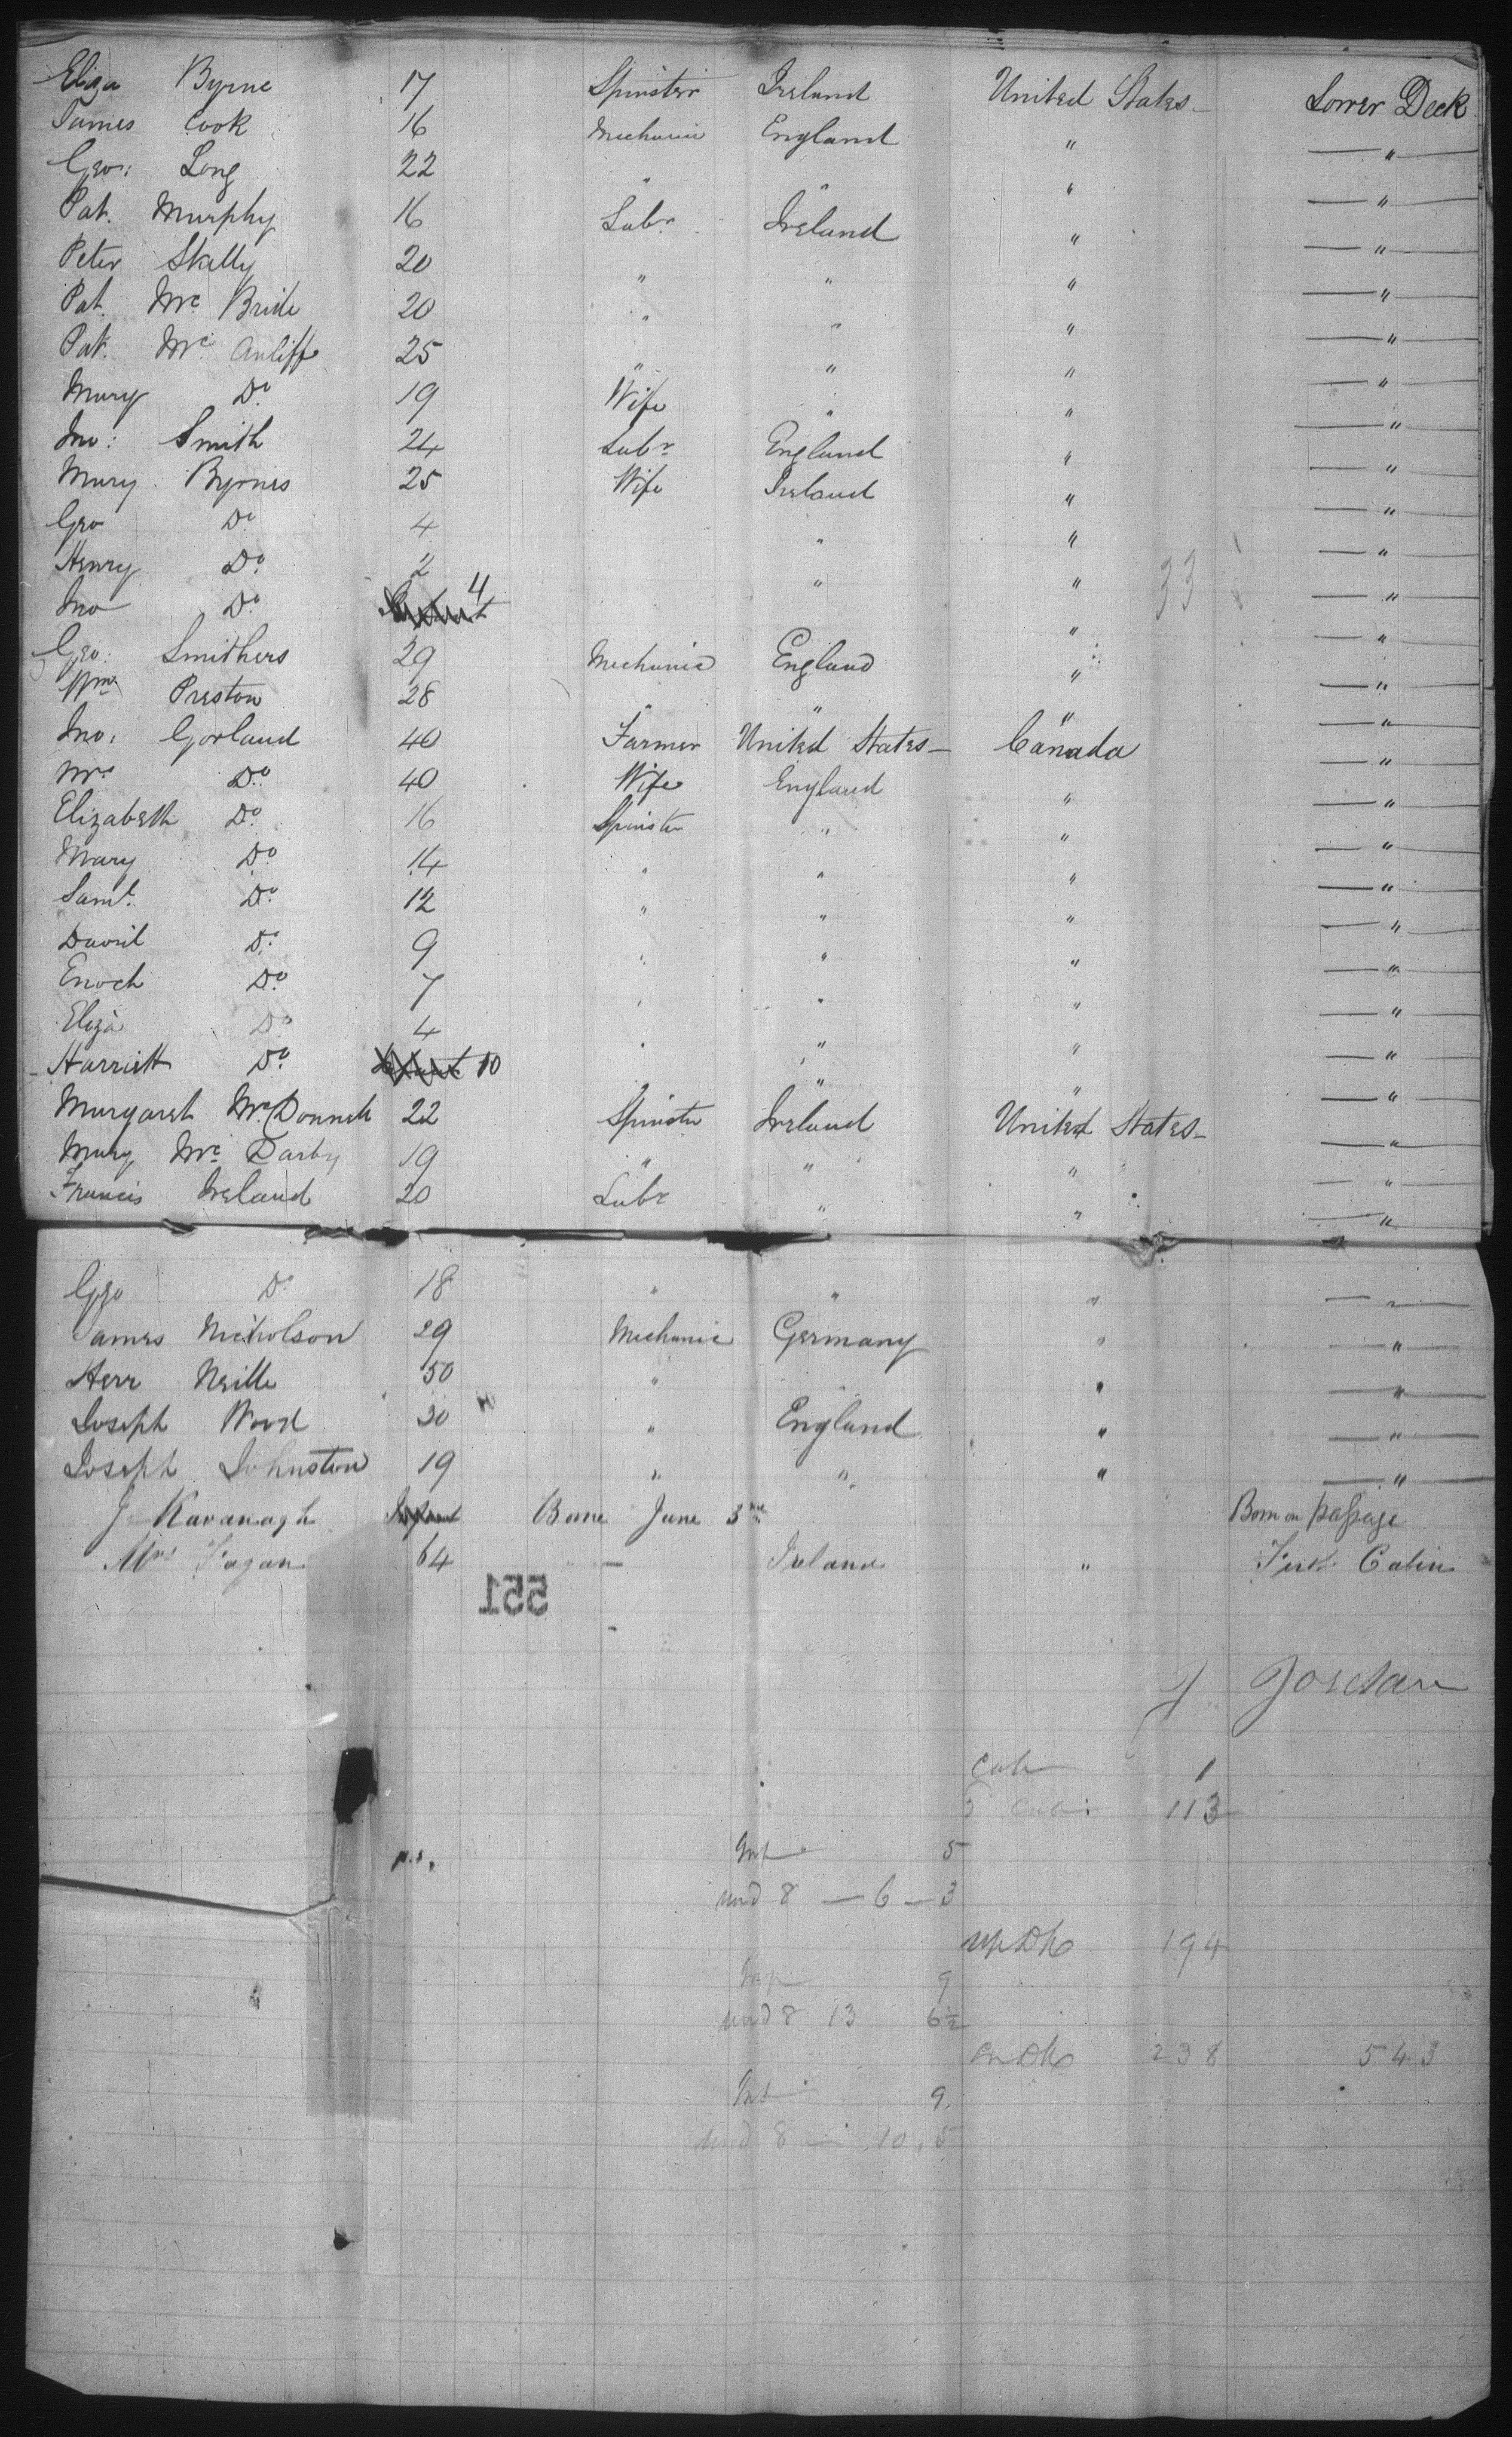 Eliza Byrne 17 Spinster Ireland United States Lower Deck
James Cook 16 Mechanic England " "
Geo: Long 22 " " " "
Pat. Murphy 16 Labr Ireland " "
Peter Skelly 20 " " " "
Pat. Mc Bride 20 " " " "
Pat. Mc Auliffe 25 " " " "
Mary Do 19 Wife " " "
Jno: Smith 24 Labr England " "
Mary Byrnes 25 Wife Ireland " "
Geo Do 4 " " "
Henry Do 2 " " 33 "
Jno Do Infant 4 " "
Geo: Smithers 29 Mechanic England " "
Wm Preston 28 " " " "
Jno: Gorland 40 Farmer United States Canada "
Mrs Do 40 Wife England " "
Elizabeth Do 16 Spinster " " "
Mary Do 14 " " " "
Saml. Do 12 " " " "
David Do 9 " " " "
Enoch Do 7 " " " "
Eliza Do 4 " " " "
Harriett Do Infant 10 " " "
Margaret McDonnell 22 Spinster Ireland United States "
Mary Mc Darby 19 " " " "
Francis Ireland 20 Labr " " "
Geo Do 18 " " " "
James Nicholson 29 Mechanic Germany " "
Herr Neille 50 " " " "
Joseph Wood 30 " England " "
Joseph Johnston 19 " " " "
J Kavanagh Infant Borne June 3rd Born on passage
Mrs Fagan 64 — Ireland " First Cabin
551
J Jordan
Cab 1
Cab: 113
Inf 5
und 8 — 6 — 3
up Dk 194
Inf 9
und 8 13 6½
Dk 238 543
Inf 9
und 8 — 10 . 5